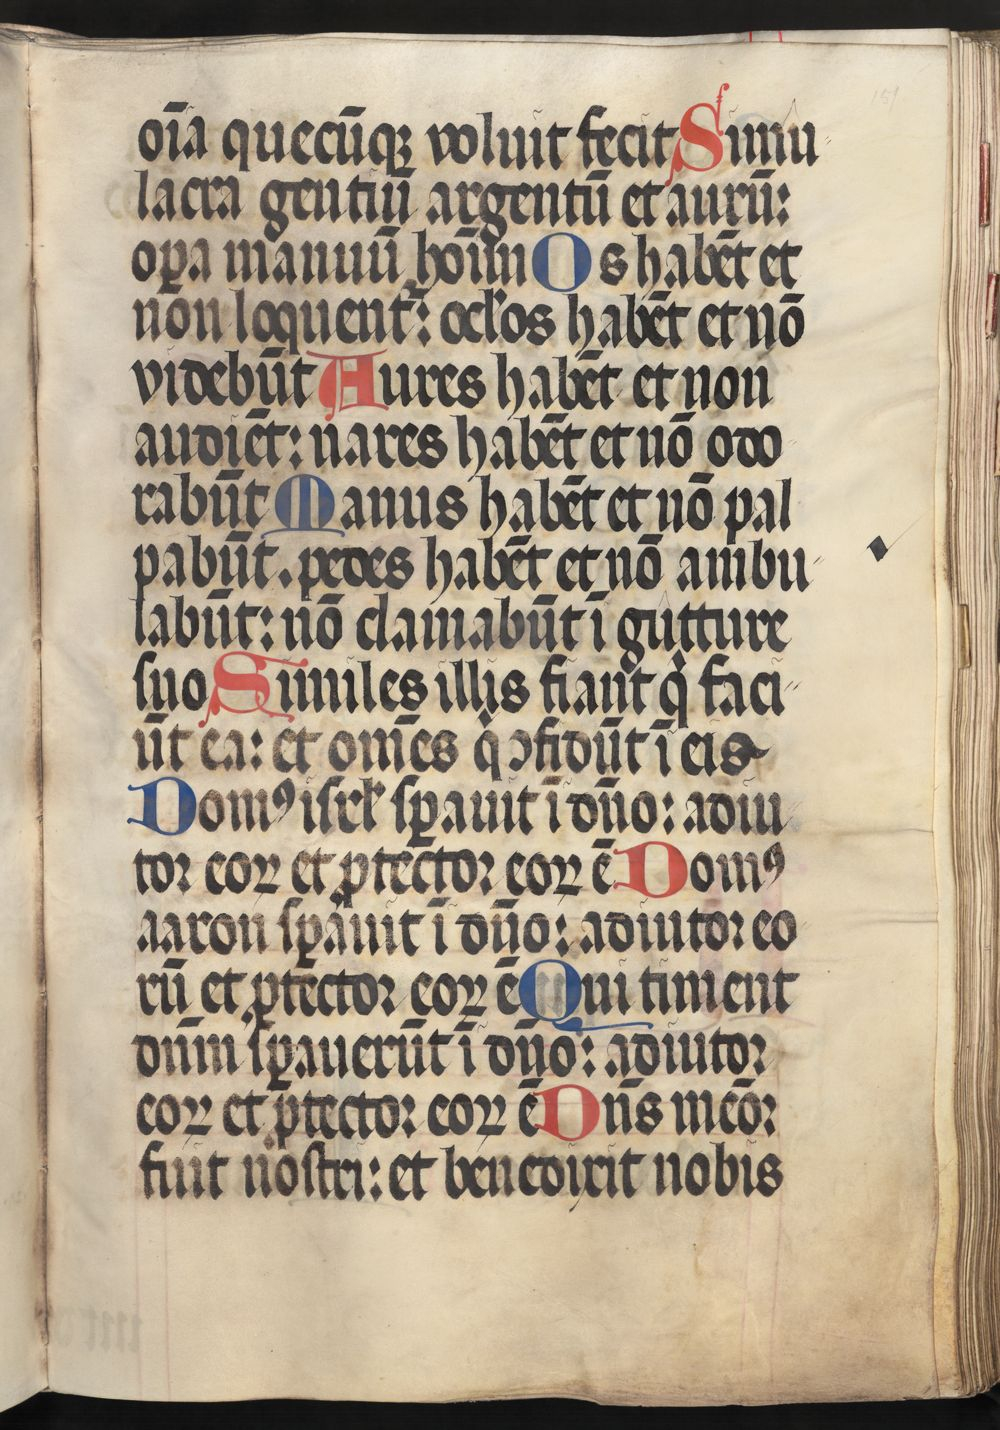 oīa quecūqꝫ voluit fecit Simu
lacra gentiū argentū et aurū:
opa manuū hoīm Os habēt et
non loquent᷑: oclos habēt et nō
videbūt Aures habēt et non
audiēt: nares habēt et nō odo
rabūt Manus habēt et nō pal
pabūt. pedes habēt et nō ambu
labūt: nō clamabūt ī gutture
suo Similes illis fiant q̇ faci
ūt ea: et om̄es q̇ ꝯfidūt ī eis
Domꝰ isrl̄ sꝑauit ī dn̄o: adiu
tor eoꝝ et ꝓtector eoꝝ ē Domꝰ
aaron sꝑauit ī dn̄o: adiutor eo
rū et ꝓtector eoꝝ ē Qui timent
dūm sꝑauerūt ī dn̄o: adiutor
eoꝝ et ꝓtector eoꝝ ē Dn̄s meōr
fuit nostri: et benedixit nobis